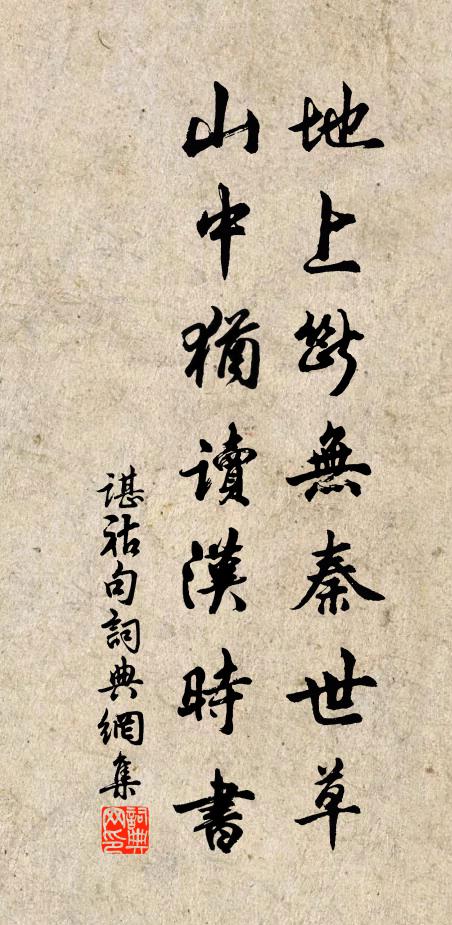 地上斷無秦世草
山中猶讀漢時書
諶祜句詞典網集
詞典網印